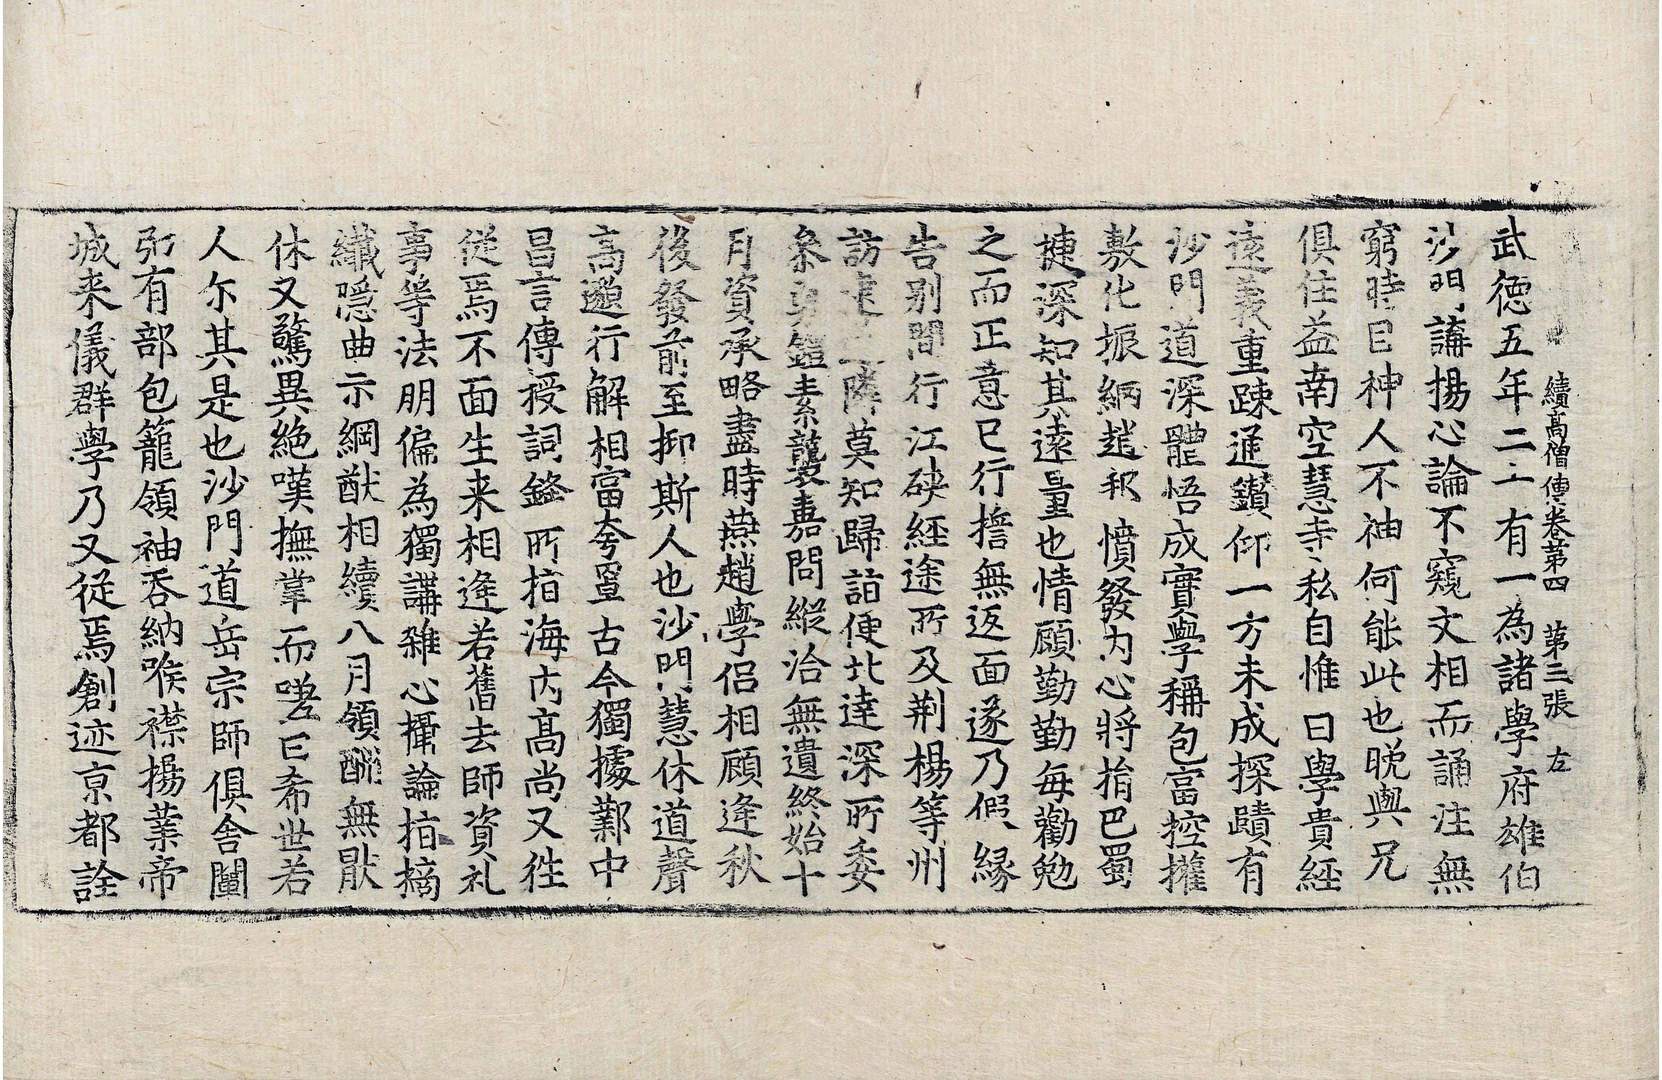 續高僧傳卷第四 第三張 左
武德五年二十有一為諸學府雄伯
沙門講揚心論不窺文相而誦注無
窮時曰神人不神何能此也晚與兄
俱住益南空慧寺私自惟曰學貴經
遠義重疎通鑽仰一方未成探賾有
沙門道深體悟成實學稱包富控權
敷化振網趙邦憤發內心將捐巴蜀
捷深知其遠量也情顧勤勤每勸勉
之而正意已行誓無返面遂乃假緣
告別間行江硤経途所及荊楊等州
訪逮道隣莫知歸詣便北達深所委
叅勇鎧素襲嘉問縱洽無遺終始十
月資承略盡時燕趙學侶相顧逢秋
後發前至抑斯人也沙門慧休道聲
高邈行解相富夸罩古今獨據鄴中
昌言傳授詞鋒所指海內高尚又往
從焉不面生来相逢若舊去師資礼
事等法朋偏為獨講雜心攝論指摘
纖隱曲示綱猷相續八月領酬無猒
休又驚異絶嘆撫掌而嗟曰希世若
人尔其是也沙門道岳宗師俱舍闡
㢧有部包籠領袖吞納喉襟揚業帝
城来儀群學乃又從焉創迹京都詮